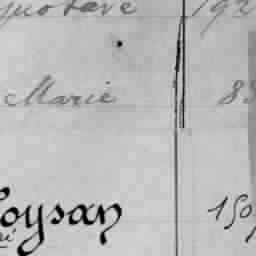 Gustave 192
Marie 83
oysan 150